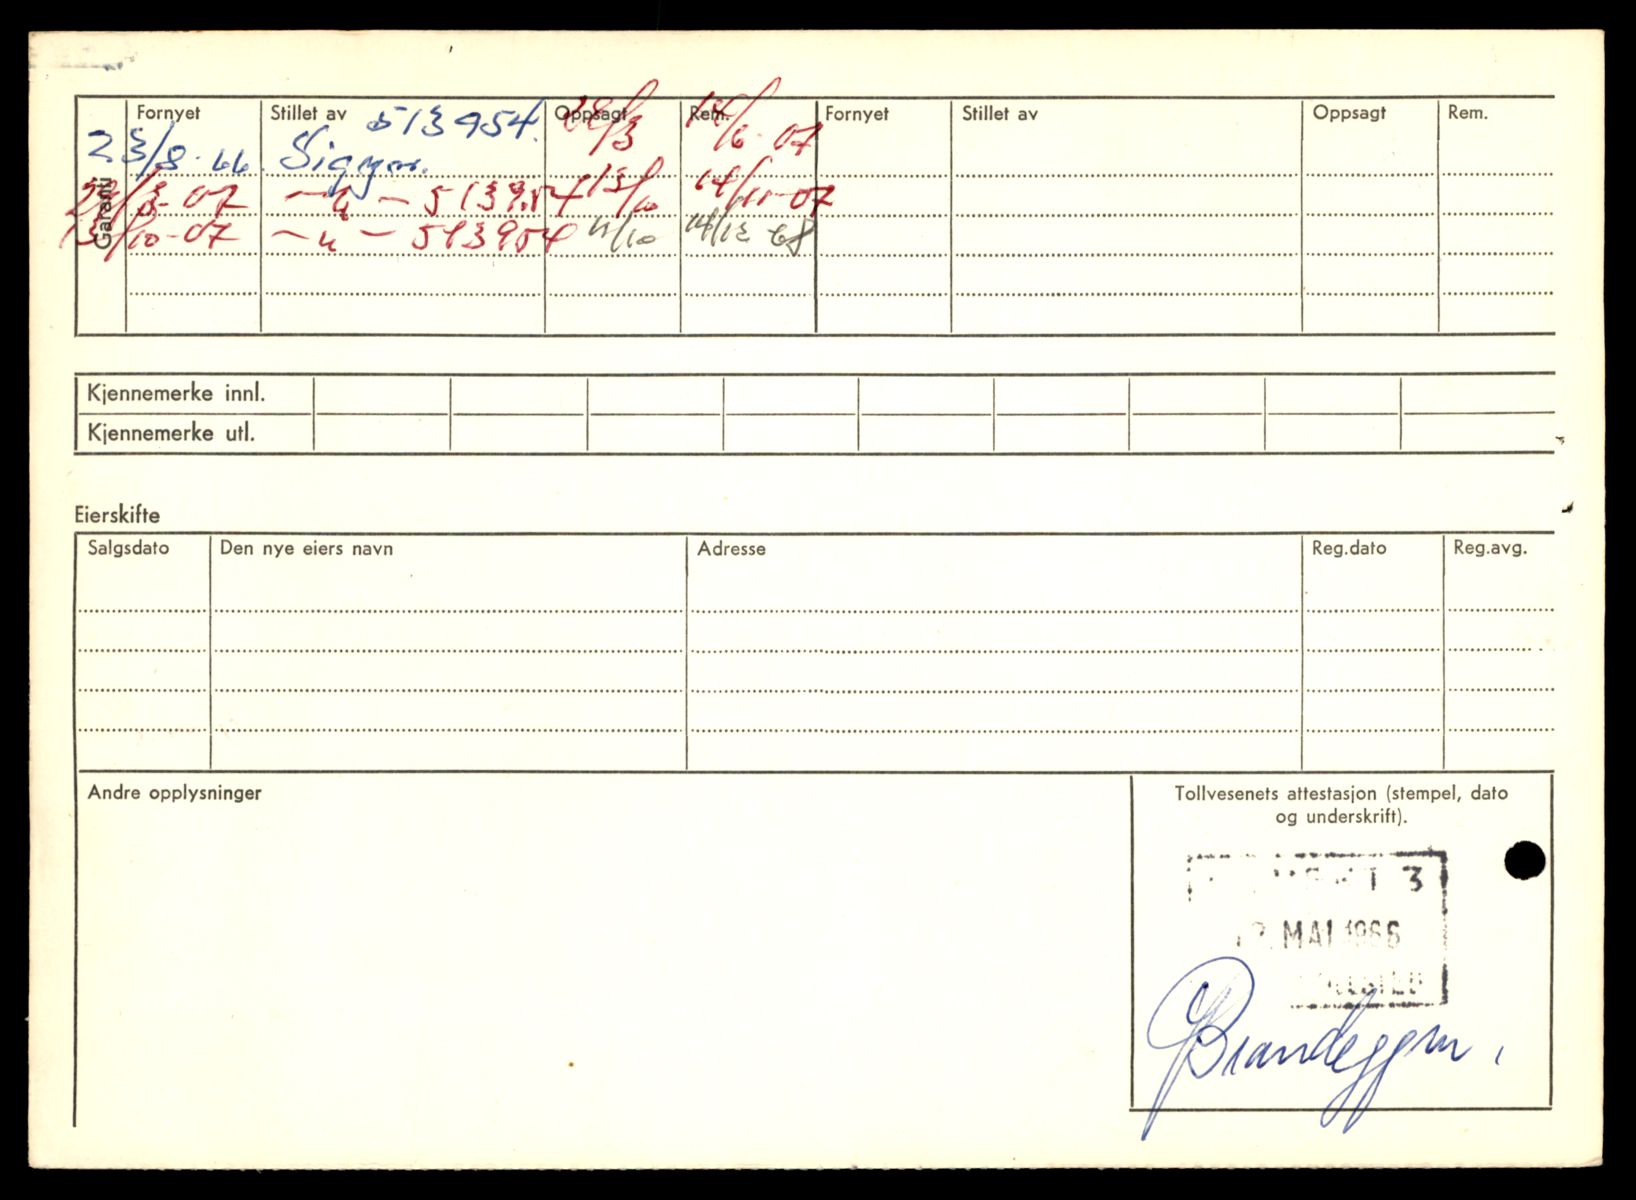 Garanti
Fornyet Stillet av 513954. Oppsagt Rem. Fornyet Stillet av Oppsagt Rem.
23/8-66. Sigyn.
-07 — u — 513954 13/10
13/10-07 — u — 513954 11/10 68
Kjennemerke innl.
Kjennemerke utl.
Eierskifte
Salgsdato Den nye eiers navn Adresse Reg.dato Reg.avg.
Andre opplysninger
Tollvesenets attestasjon (stempel, dato
og underskrift).
3
MAI 1966